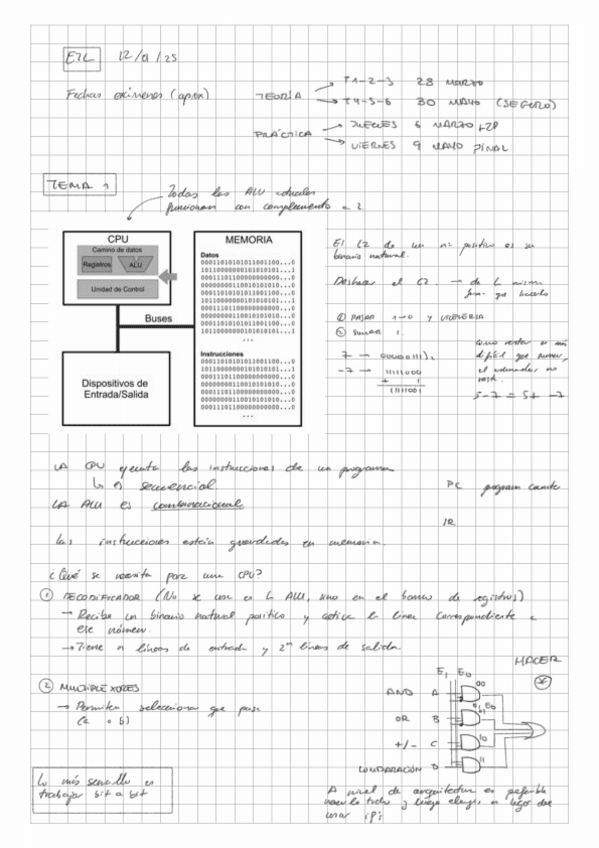 12/01/25
Fechas exámenes (aprox)
TEORÍA
T1-2-3 28 MARZO
T4-5-6 30 MAYO (SEGURO)
PRÁCTICA
JUEVES 6 MARZO +28
VIERNES 9 MAYO FINAL
TEMA 1
Todas las ALU
funcionan con complemento a 2
CPU
Camino de datos
Registros
ALU
Unidad de Control
Buses
Dispositivos de
Entrada/Salida
MEMORIA
Datos
Instrucciones
El C2 de un nº positivo es su
binario natural.
Deshacer el C2. → de la misma
forma que hacerlo
① PASAR 1→0 y VICEVERSA
② SUMAR 1.
7 → 00000111
-7 → 11111000
+ 1
11111001
como restar es más
difícil que sumar,
el ordenador no
resta.
5-7 = 5+ -7
LA CPU ejecuta las instrucciones de un programa
↳ es secuencial
LA ALU es combinacional
PC program counter
IR
Las instrucciones están guardadas en memoria.
¿Qué se necesita para una CPU?
① DECODIFICADOR (No se usa en la ALU, sino en el banco de registros)
→ Recibe un binario natural positivo y activa la línea correspondiente a
ese número.
→ Tiene n líneas de entrada y 2ⁿ líneas de salida.
② MULTIPLEXORES
→ Permiten seleccionar que pasa
(a o b)
HACER
E₁ E₀
AND A 00
OR B 01
+/- C 10
COMPARACIÓN D 11
Lo más sencillo es
trabajar bit a bit
A nivel de arquitectura es preferible
hacerlo todo y luego elegir, en lugar de
usar if's